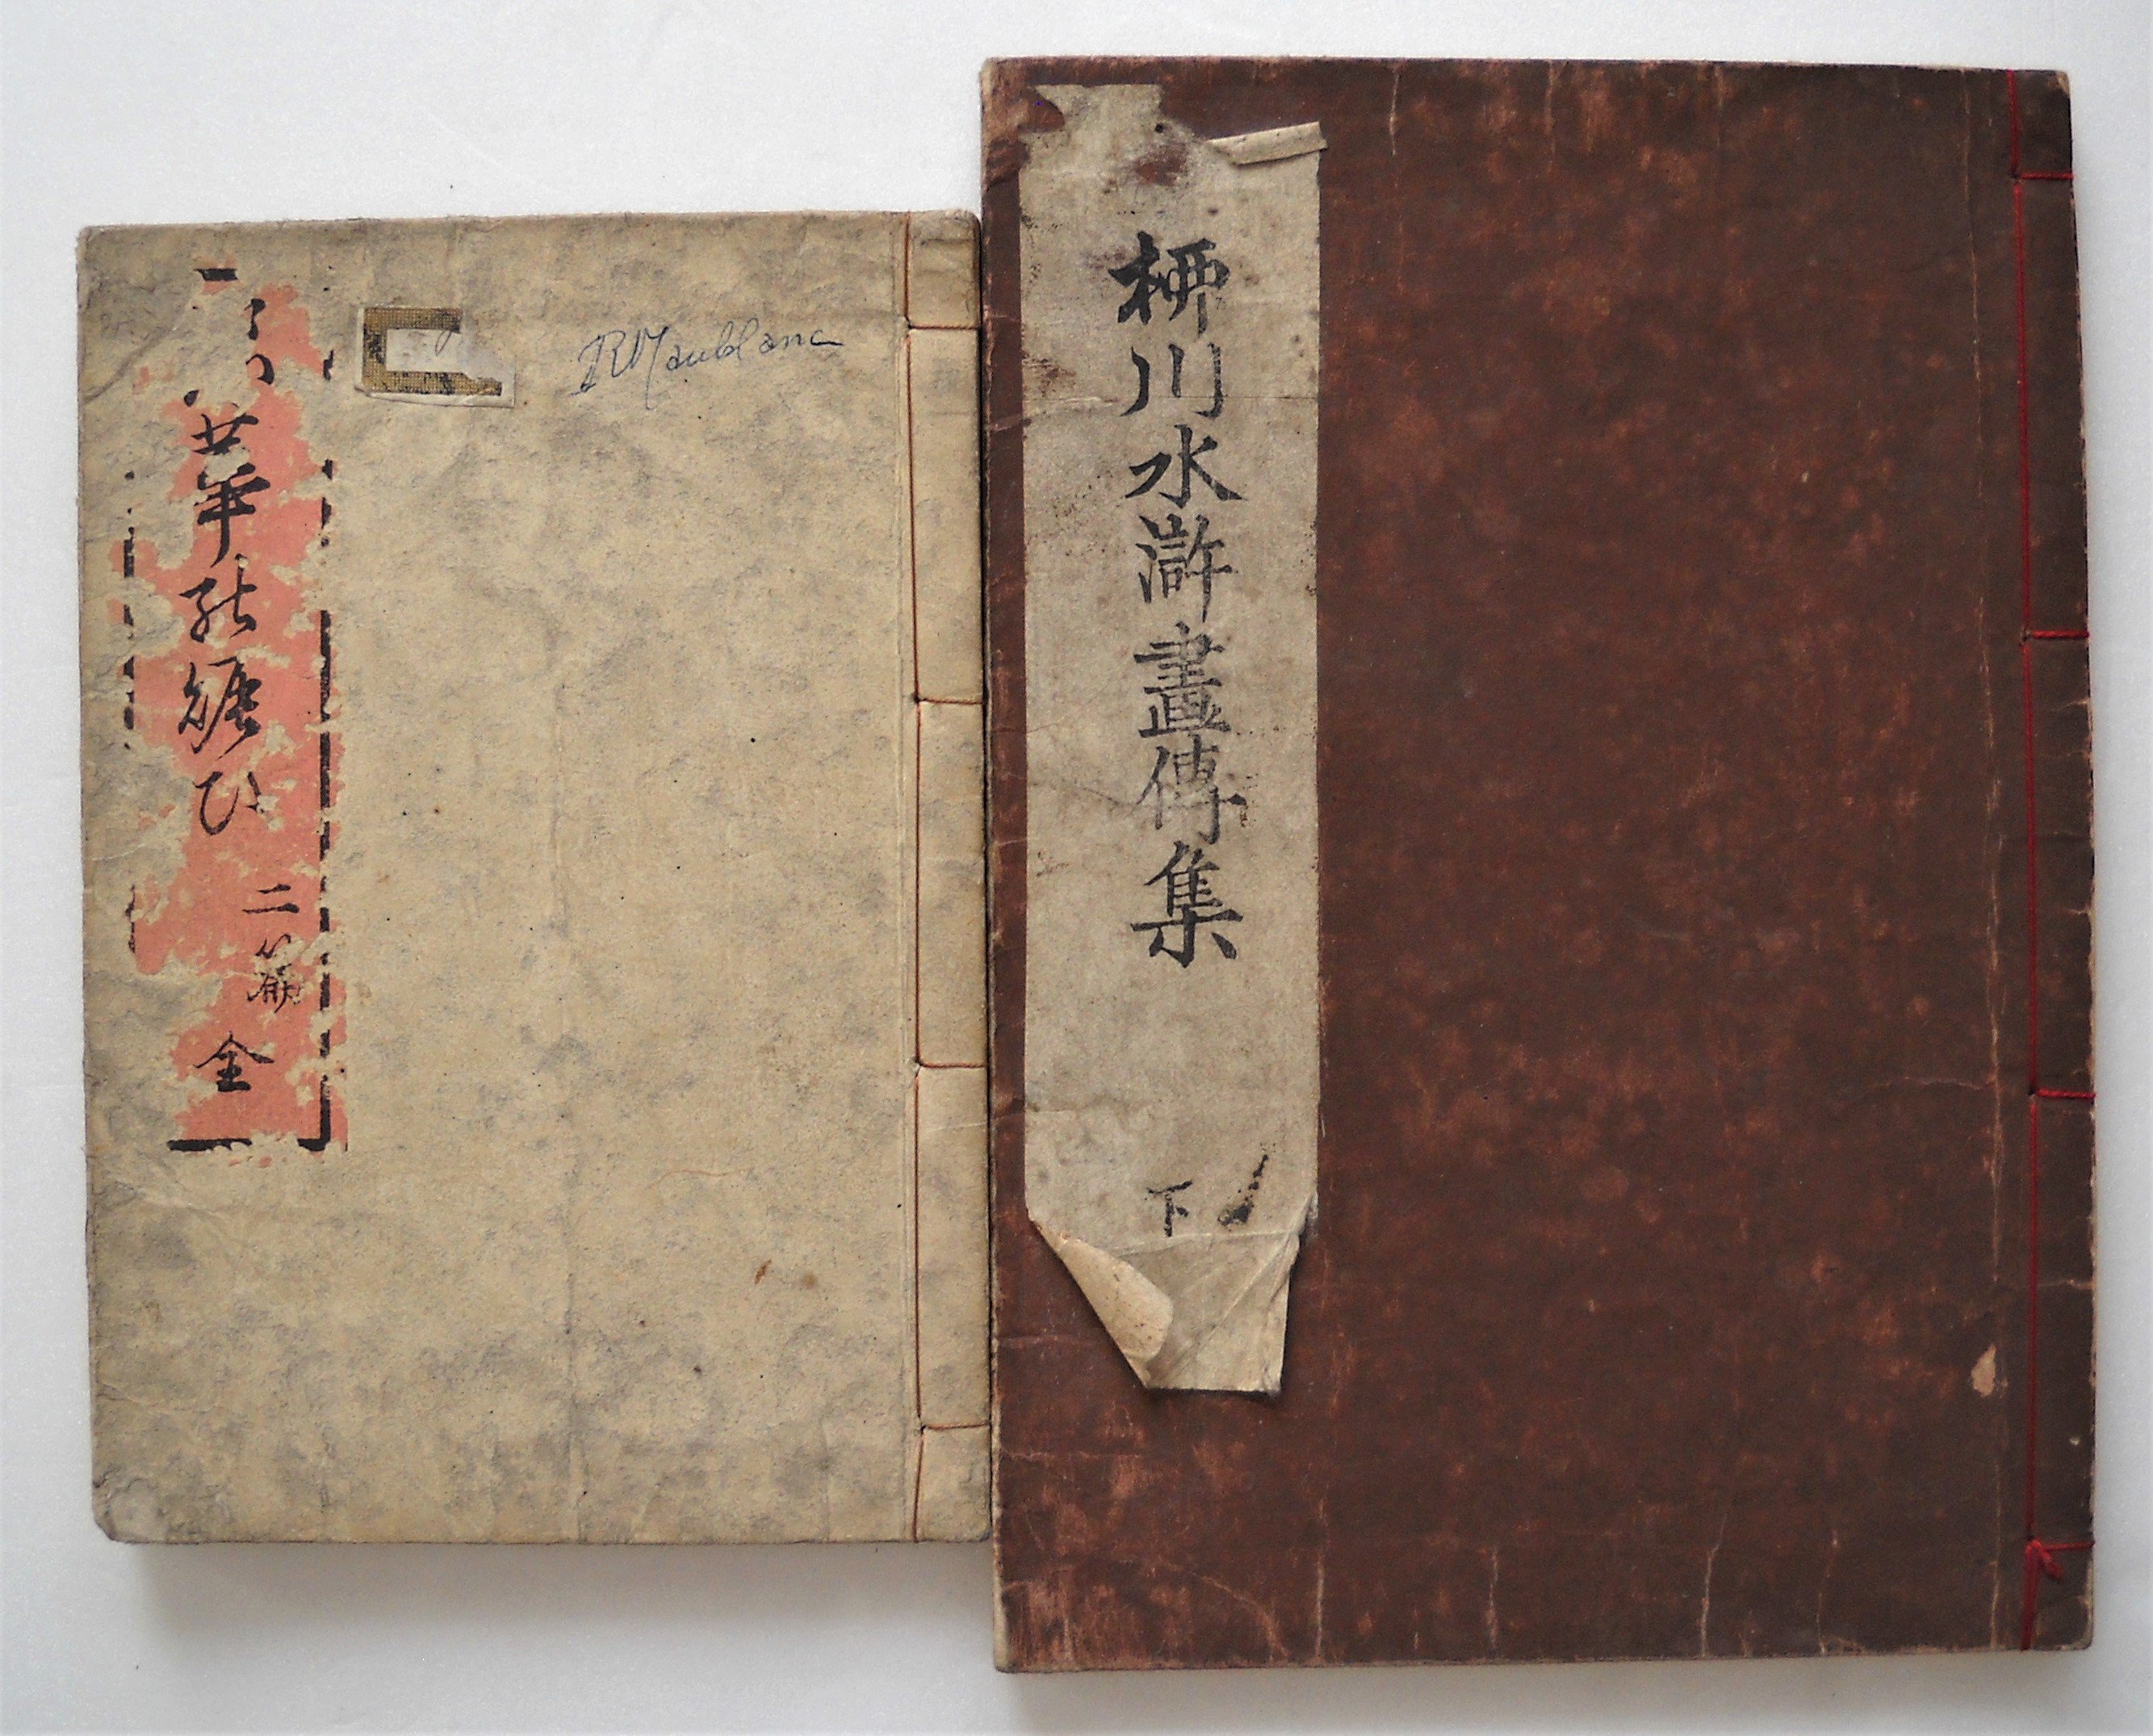 華能
ひ
二篇
全
R Maublanc
桺川水滸畫傳集
下